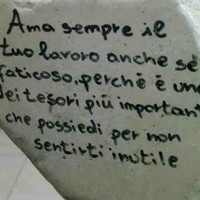 Ama sempre il
tuo lavoro anche sé
faticoso, perché è uno
dei tesori più important
che possiedi per non
sentirti inutile